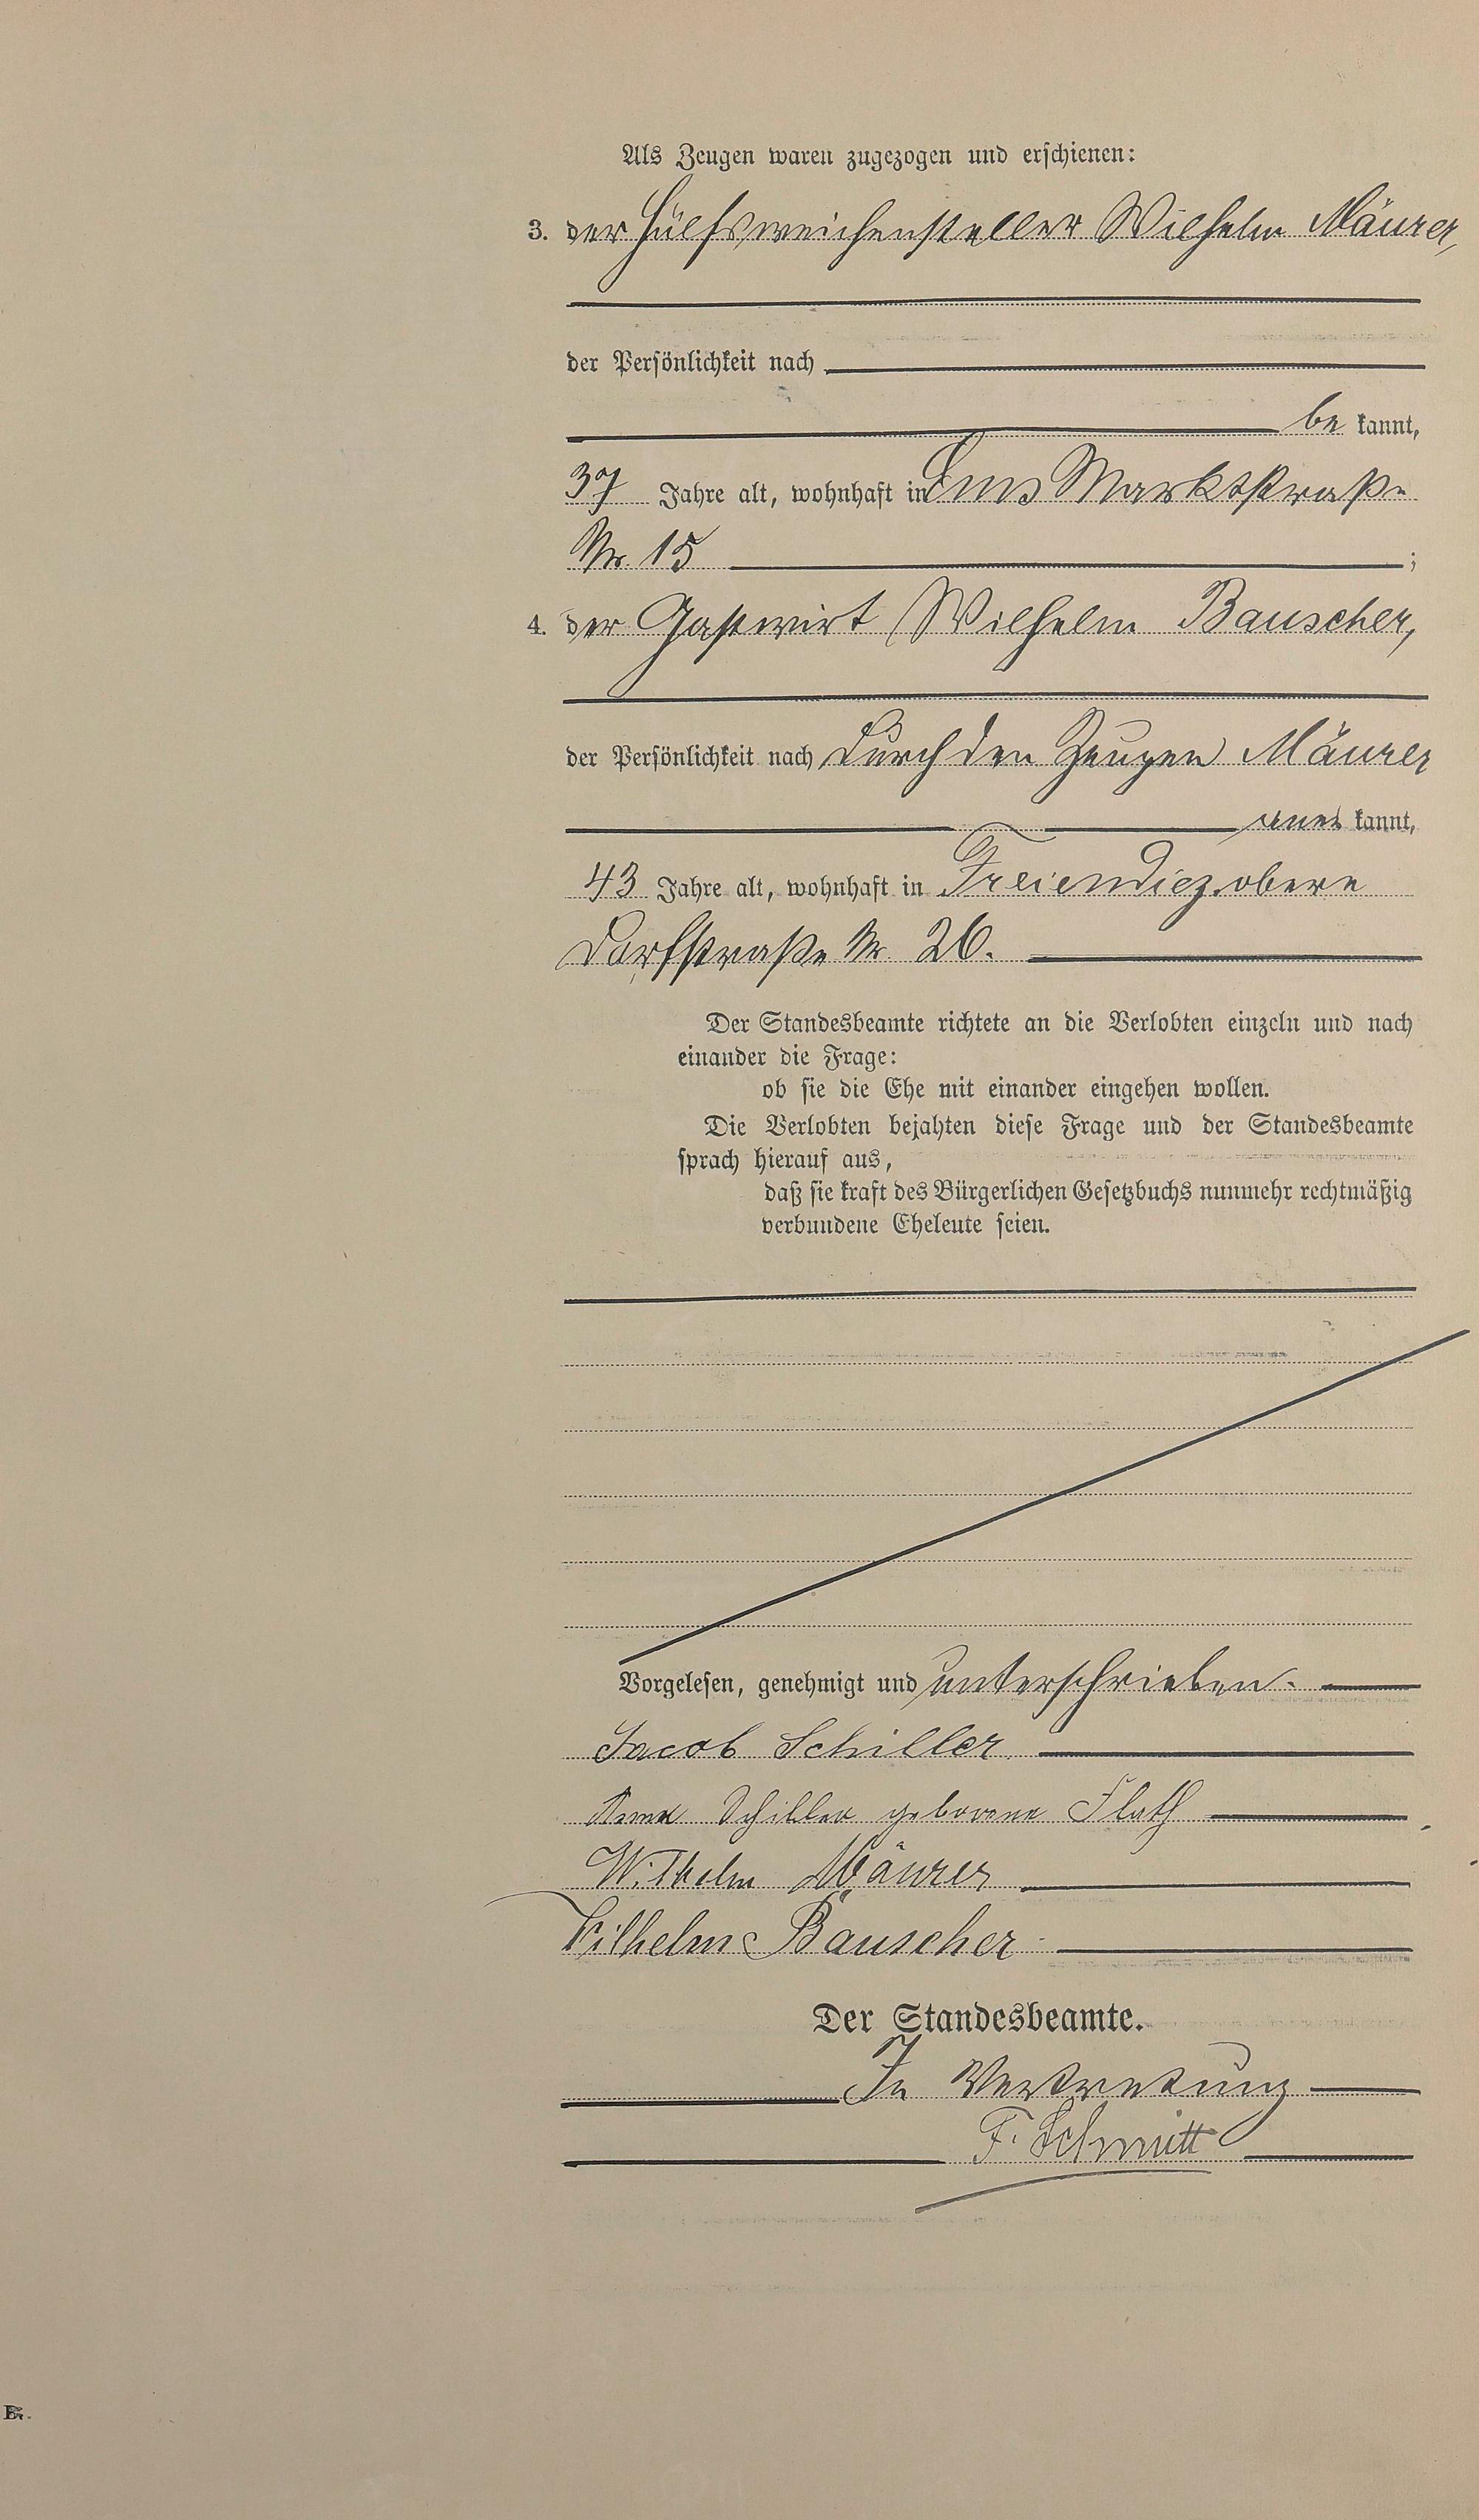 Als Zeugen waren zugezogen und erschienen:
3. der Hülfsweichensteller Wilhelm Mäurer,
der Persönlichkeit nach
be kannt,
37 Jahre alt, wohnhaft in Ems Marktstraße
Nr. 15 ;
4. der Gastwirt Wilhelm Bauscher,
der Persönlichkeit nach durch den Zeugen Mäurer
aner kannt,
43 Jahre alt, wohnhaft in Freiendiez, obere
Dorfstraße Nr. 26.
Der Standesbeamte richtete an die Verlobten einzeln und nach
einander die Frage:
ob sie die Ehe mit einander eingehen wollen.
Die Verlobten bejahten diese Frage und der Standesbeamte
sprach hierauf aus,
daß sie kraft des Bürgerlichen Gesetzbuchs nunmehr rechtmäßig
verbundene Eheleute seien.
Vorgelesen, genehmigt und unterschrieben.
Jacob Schiller
Schiller geborene Flath
Wilhelm Mäurer
Wilhelm Bauscher
Der Standesbeamte.
In Vertretung
F. Schmitt